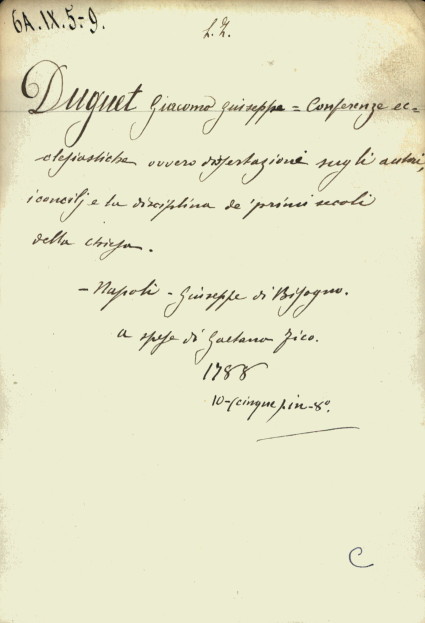 6A.IX.5-9.
L.Z.
Duguet Giacomo Giuseppe = Conferenze ec=
clesiastiche ovvero dissertazione sugli autori,
i concilj e la disciplina de' primi secoli
della chiesa.
- Napoli - Giuseppe di Bisogno.
a spese di Gaetano Tico.
1788
10-(cinque) in-8°.
C